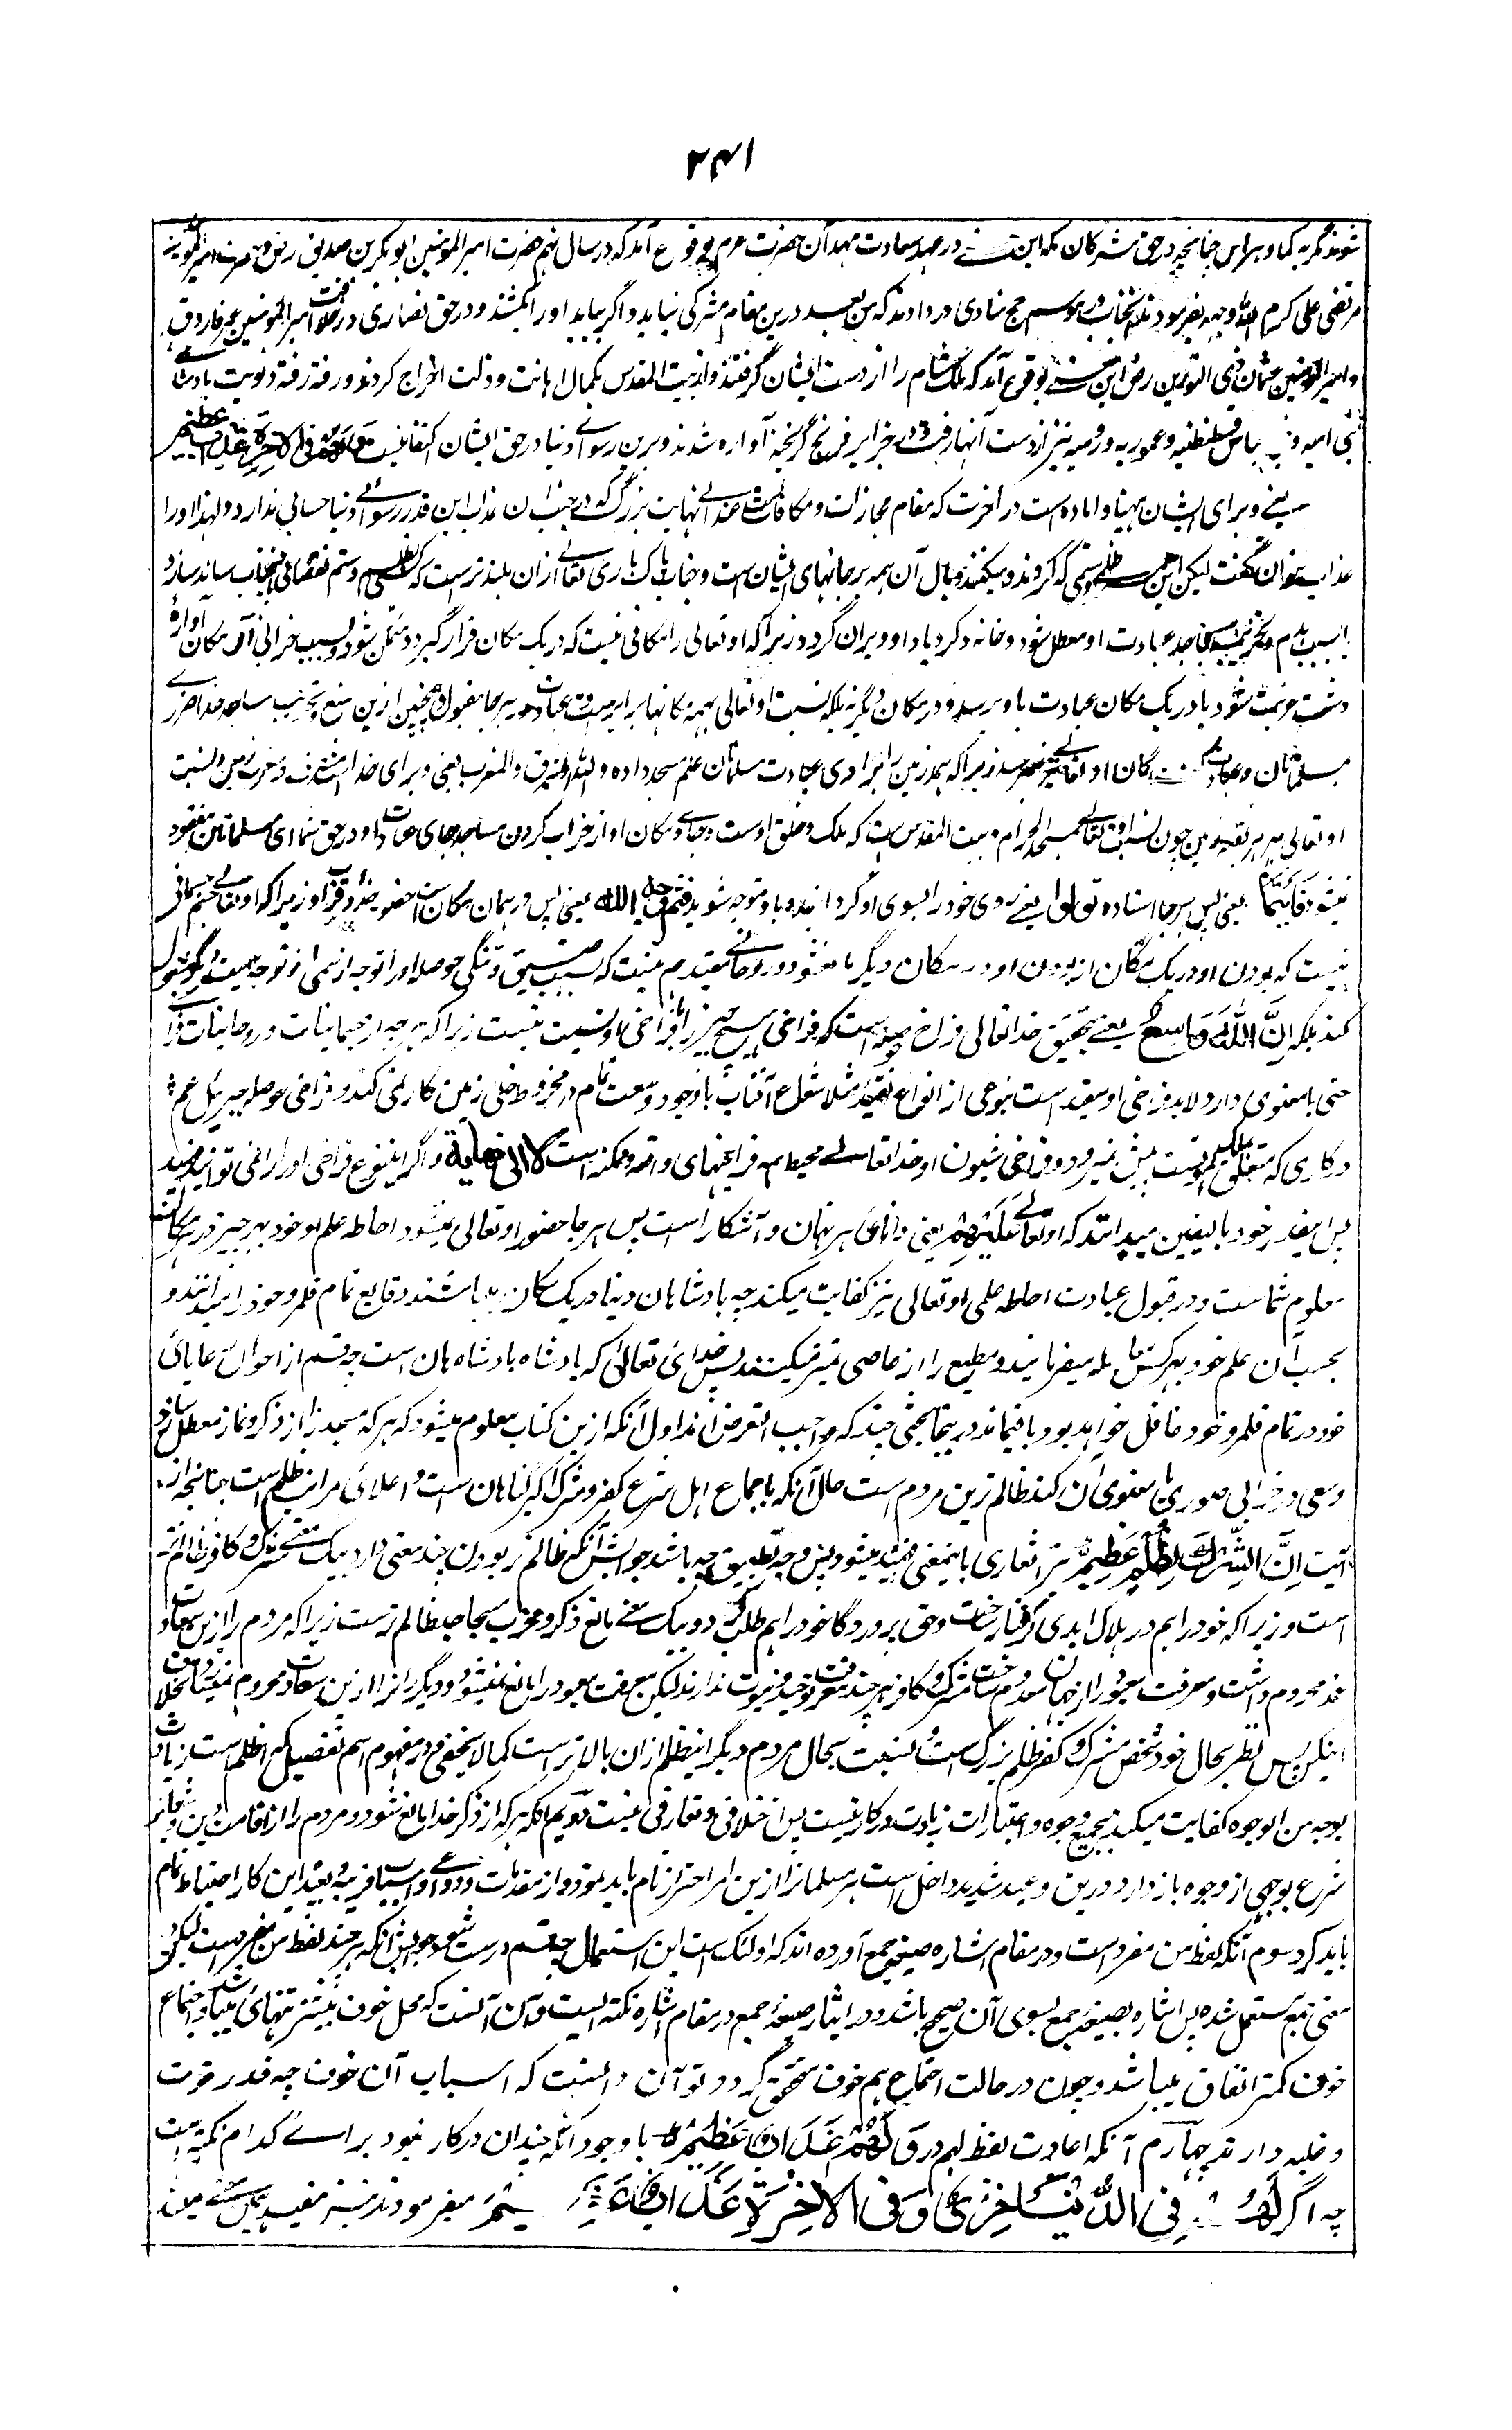 ۲۴۱
شوند مگر به کما و هراس چنانچه در حق مشرکان مکه این معنے در عهد سعادت مهد آن حضرت صلعم بوقوع آمد که در سال نهم حضرت امیر المومنین ابو بکر صدیق رض و حضرت امیر
مرتضی علی کرم الله وجهه بفرمودند آنجناب در موسم حج منادی در دادند که من بعد درین مقام مشرکی نیاید و اگر بیاید او را بکشند و در حق نصاری در خلافت امیر المومنین عمر فاروق
و امیر المومنین عثمان ذی النورین رض این معنے بوقوع آمد که ملک شام را از دست ایشان گرفتند و از بیت المقدس بکمال اهانت و ذلت اخراج کردند و رفته رفته در نوبت بادشاهے
بنی امیه و بنی عباس قسطنطنیه و عموریه و رومیه نیز از دست آنها رفت و در جزایر فرنج گریخته آواره شدند و برین رسوائے دنیا در حق ایشان اکتفا نیست وَلَهُمْ فِی الْاٰخِرَةِ عَذَابٌ عَظِیْمٌ
یعنے و برای ایشان مهیا و اماده است در اخرت که مقام مجازات و مکافات است عذابے نهایت بزرگ که در جنب آن عذاب این قدر رسوائے دنیا حسابی ندارد و لهذا او را
عذاب نتوان گفت لیکن این همه ظلم و ستمی که کردند و میکنند وبال آن همه بر جانهای ایشان است و جناب پاک باری تعالے ازان بلند تر است که ظلم و ستم نقصانی بآنجناب رساند سازد و
یا بسبب هدم و تخریب مساجد عبادت او معطل شود و خانه ذکر و یاد او ویران گردد زیرا که او تعالی را مکانی نیست که در یک مکان قرار گیرد و متمکن شود و بسبب خرابی آن مکان آواره
دشت غربت شود یا در یک مکان عبادت باو برسد و در مکان دیگر نه بلکه نسبت او تعالی بهمه مکانها برابر است و عبادت هر جا مقبول و همچنین ازین منع و تخریب مساجد خدا ضررے
بمسلمانان و عبادت گان او تعالے نیز نمیرسد زیرا که همه زمین را برای عبادت مسلمانان حکم مسجد داده وَلِلّٰهِ الْمَشْرِقُ وَالْمَغْرِبُ یعنی و برای خدا است مشرق و مغرب زمین و نسبت
او تعالی بهر بقعه زمین چون نسبت او تعالی بمسجد الحرام و بیت المقدس است که ملک و خلق اوست و جا و مکان او از خراب کردن مساجد جای عبادت او در حق شما ای مسلمانان مفقود
نمیشود فَاَیْنَمَا یعنی پس هر جا استاده تُوَلُّوْا یعنے روی خود را بسوی او گردانیده و باو متوجه شوید فَثَمَّ وَجْهُ اللّٰهِ یعنی پس در همان مکان است حضور خدا و قرب او زیرا که او تعالے جسم جسمانی
نیست که بودن او در یک مکان از بودن او در مکان دیگر مانع شود و روحانے مقید هم نیست که بسبب ضیق و تنگی حوصله او را توجه از سمتی از توجه بسمت دیگر مشغول
کند بلکه اِنَّ اللّٰهَ وَاسِعٌ یعنے بتحقیق خدا تعالی فراخ حوصله است که فراخی هیچ چیز را بفراخی او نسبت نیست زیرا که هر چه از جسمانیات و روحانیات فراخے
حسی یا معنوی دارد لابد فراخی او مقید است بنوعی از انواع تقیید مثلا شعاع آفتاب باوجود وسعت تمام در مخروط ظلی زمین کار نمی کند و فراخی حوصله جبرئیل عم
در کاری که متعلق بمیکائیل است پیش نمیرود و فراخی شیون او خدا تعالے محیط همه فراخیهای واقعه و ممکنه است لا الی نهایة و اگر این نوع فراخی او را نمی توانید فهمید
پس اینقدر خود بالیقین میدانید که او تعالے عَلِیْمٌ یعنی دانای هر نهان و آشکارا است پس هر جا حضور او تعالی میشود احاطه علم او خود بهر چیز در هر مکان
معلوم شماست و در قبول عبادت احاطه علمی او تعالی نیز کفایت میکند چه بادشاهان دنیا در یک مکان می باشند و قایع تمام قلمرو خود را میدانند و
بحسب آن علم خود بهر کس معامله میفرمایند و مطیع را از عاصی تمیز میکنند پس خدائ تعالی که بادشاه بادشاهان است چه قسم از احوال رعایائ
خود در تمام قلمرو خود غافل خواهد بود باقیماند در ینجا بحثی چند که واجب التعرض اند اول آنکه ازین کتاب معلوم میشود که هر که مسجد را از ذکر و نماز معطل سازد
و سعی در خرابی صوری یا معنوی آن کند ظالم ترین مردم است حال آنکه باجماع اهل شرع کفر و شرک اکبر گناهان است و اعلائ مراتب ظلم است چنانچه از
آیت اِنَّ الشِّرْکَ لَظُلْمٌ عَظِیْمٌ نیز اشعاری باینمعنی فهمیده میشود پس وجه تطبیق چه باشد جوابش آنکه ظالم تر بودن چند معنی دارد بیک معنے مشرک و کافر ظالم تر
است و زیرا که خود را هم در هلاک ابدی گرفتار ساخت و حق پروردگار خود را هم طلب کرد و بیک معنے مانع ذکر و مخرب مساجد ظالم تر است زیرا که مردم را ازین سعادت
خدا محروم داشت و معرفت معبود را از جهان معدوم ساخت مشرک و کافر هر چند معرفت توحید و نبوت ندارند لیکن معرفت معبود را مانع نمیشوند و دیگران را ازین سعادت محروم نمیسازند بخلاف
اینکس پس نظر بحال خود شخص مشرک و کفر ظلم بزرگ است و نسبت بحال مردم دیگر این ظلم ازان بالاتر است کما لا یخفی و در مفهوم اسم تفصیل که اظلم است زیادت
بوجه من الوجوه کفایت میکند بجمیع وجوه و اعتبارات زیادت در کار نیست پس اختلافی و تعارفی نیست دویم آنکه هر که از ذکر خدا مانع شود و مردم را از اقامت دین و شعائر
شرع بوجهی از وجوه باز دارد درین وعید شدید داخل است هر مسلمان را ازین امر احتراز تام باید نمود و از مقدمات و دواعے و اسباب قریبه و بعیده این کار احتیاط تمام
باید کرد سوم آنکه لفظ من مفرد است و در مقام اشاره صیغه جمع آورده اند که اولئک است این استعمال چه قسم درست شود جوابش آنکه هر چند لفظ من مفرد است لیکن در
معنی جمع مستعمل شده پس اشاره بصیغه جمع بسوی آن صحیح باشد و در ایثار صیغه جمع در مقام اشاره نکته ایست و آن آنست که محل خوف بیشتر تنهائے میباشد و اجتماع
خوف کمتر اتفاق میباشد و چون در حالت اجتماع هم خوف متحقق گردد توان دانست که اسباب آن خوف چه قدر قوت
و غلبه دارند چهارم آنکه اعادت لفظ لهم در وَلَهُمْ عَذَابٌ عَظِیْمٌ باوجود آنکه چندان در کار نبود براے کدام نکته است
چه اگر لَهُمْ فِی الدُّنْیَا خِزْیٌ وَفِی الْاٰخِرَةِ عَذَابٌ عَظِیْمٌ میفرمودند نیز مفید همین معنے میشد